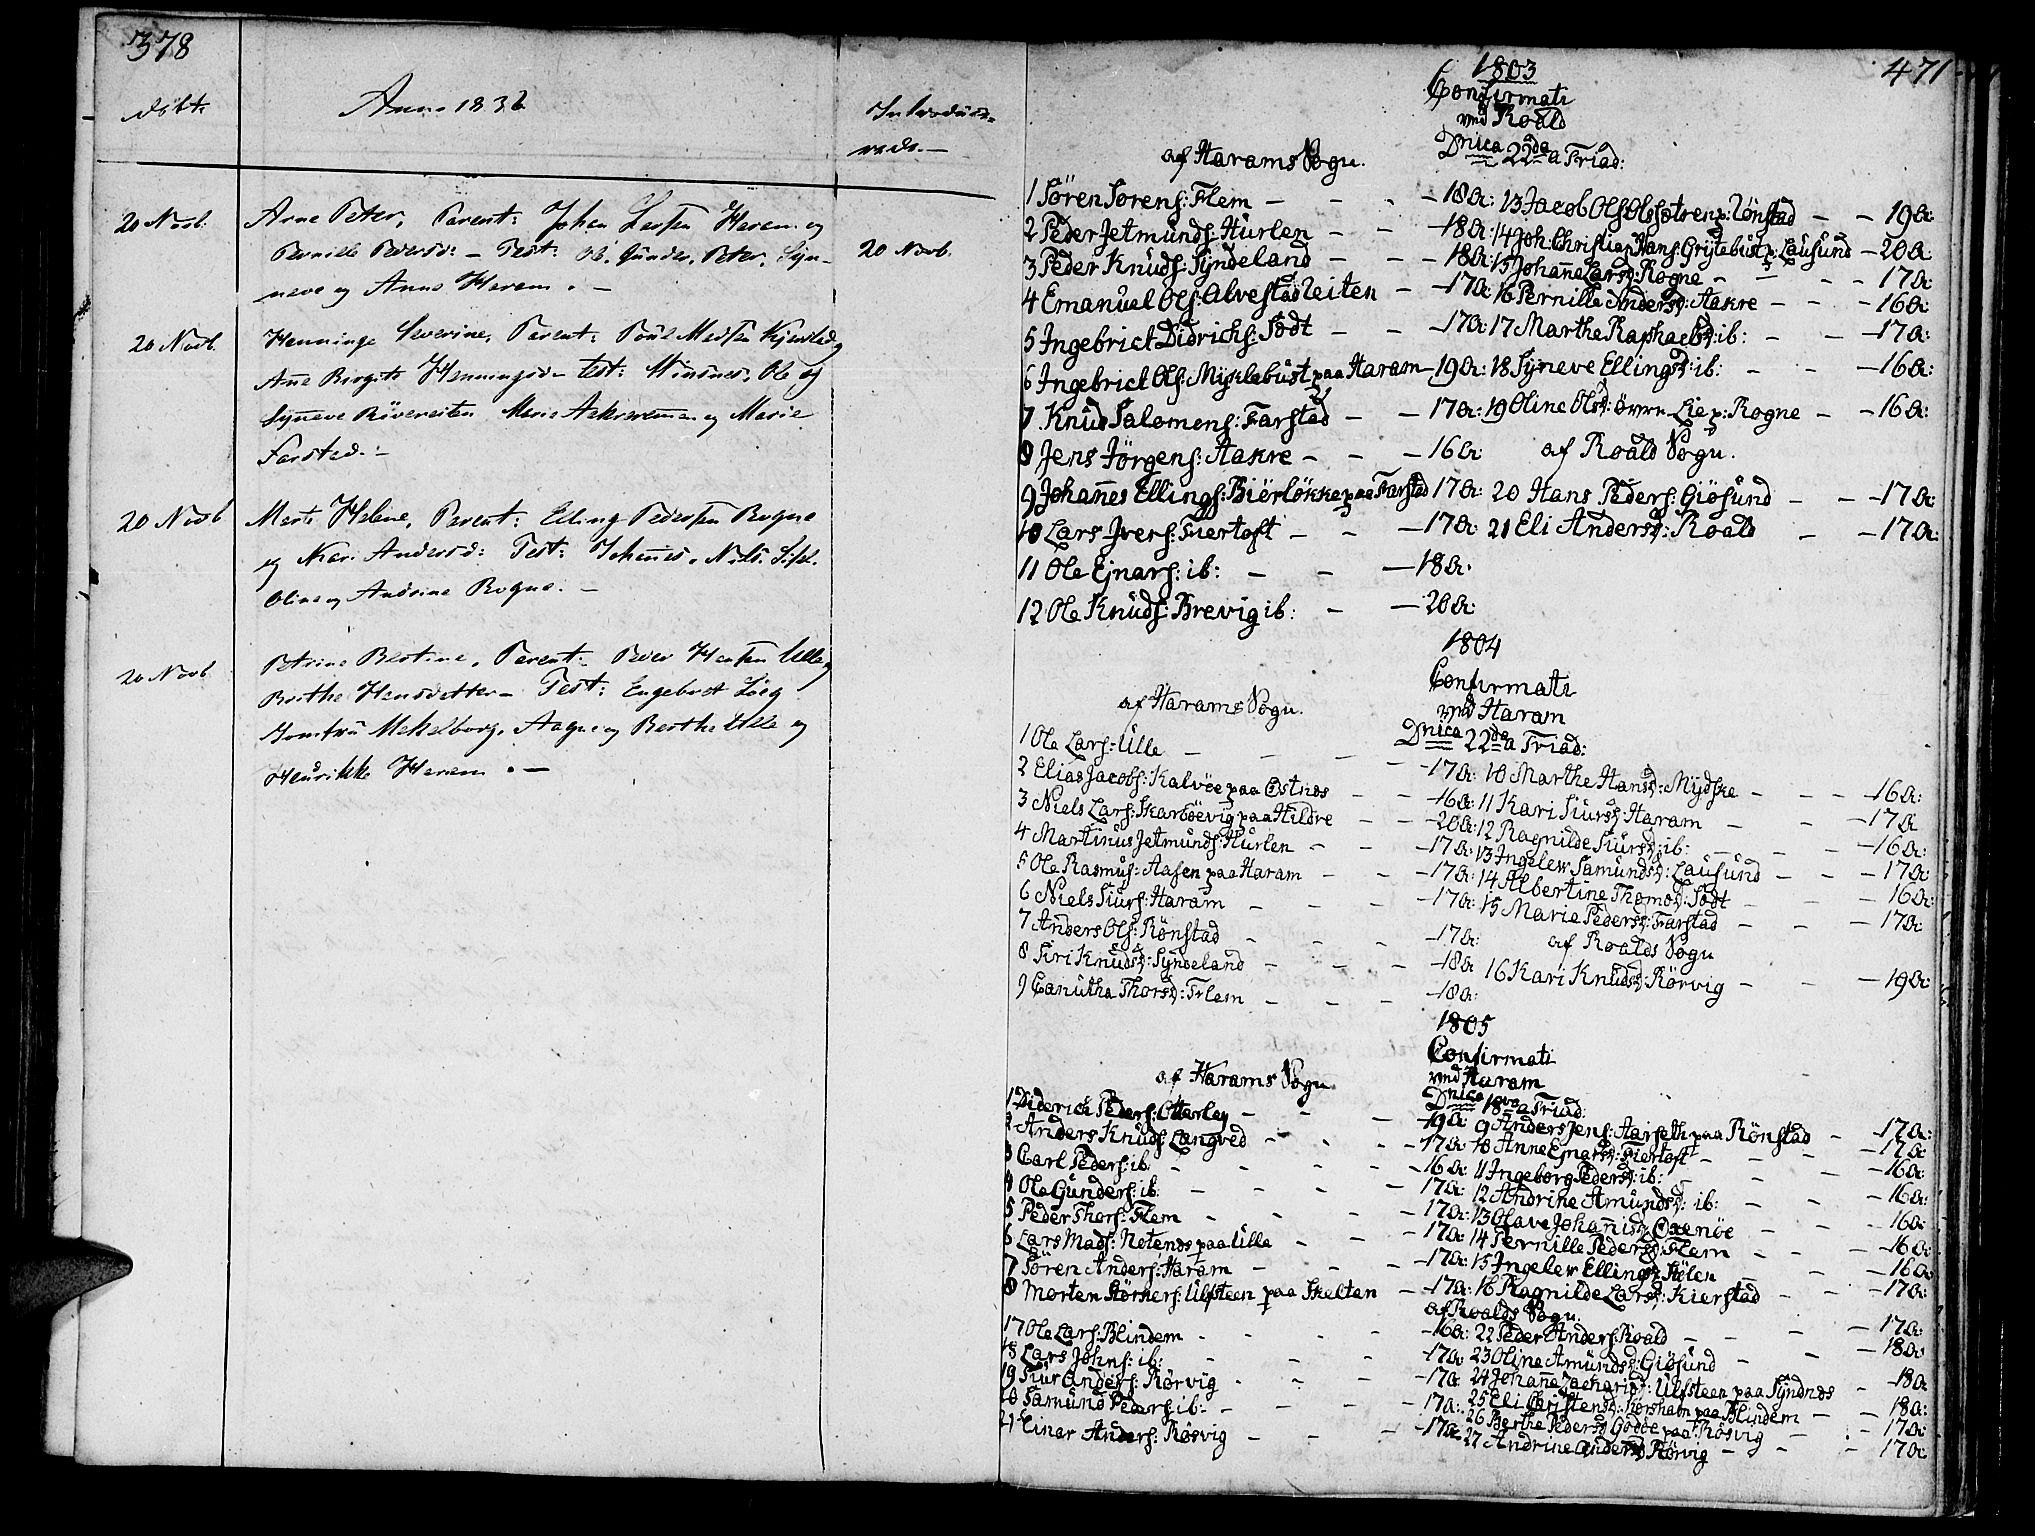 378
døbte
Anno 1836
Introduce-
rede.—
20 Novb: Arne Peter, Parent: Johan Larsen Haram og
Pernille Pedersd: – Test: Ole, Gunder, Peter, Syn- 20 Novb.
neve og Anne Haram. –
20 Novb. Henninge Severine, Parent: Poul Madsen Kjerstad og
Ane Birgite Henningsd– Test: Ole og
Synneve Røvereiten Marie Aakreremen og Marie
Farstad. –
20 Novb Marte Helene, Parent: Elling Pedersen Rogne
og Kari Andersd: Test: Johannes, Niels,
Oline og Andrine Rogne. –
20 Novb Petrine Bertine, Parent: Peder Hansen Ulla og
Berthe Hansdatter – Test: Engebret
Mekelborg, Aagne og Berthe Ulla og
Henrikke Haram. –
471
1803
Confirmati
ved Roald
af Harams Sogn. Dnica 22da a Triad:
1 Sören Sörens: Flem – – – 18 a:
2 Peder Jetmunds: Hurlen – – 18 a:
3 Peder Knuds: Syndeland – – 18 a:
4 Emanuel Ols: Alvestadleiten – 17 a:
5 Ingebrict Didrichs: Södt – – 17 a:
6 Ingebrict Ols: Myklebust paa Haram – 19 a:
7 Knud Salomens: Farstad – – 17 a:
8 Jens Jörgens: Aakre – – – 16 a:
9 Johannes Ellings: Biörlökke paa Farstad 17 a:
10 Lars Ivers: Fiertoft – – – 17 a:
11 Ole Ejnars: ib: – – – 18 a:
12 Ole Knuds: Brevig ib: – – 20 a:
13 Jacob Ols: Olsötren p: Rönstad – – 19 a:
14 Joh: Christian Hans: Grytebust p: Lausund – 20 a:
15 Johanne Larsd: Rogne – – – 17 a:
16 Pernille Andersd: Aakre – – – 16 a:
17 Marthe Raphaelsd: ib: – – – 17 a:
18 Syneve Ellingsd: ib: – – – 16 a:
19 Oline Olsd: övrre Lie p: Rogne – – 16 a:
af Roald Sogn.
20 Hans Peders: Giösund – – 17 a:
21 Eli Andersd: Roald – – 17 a:
1804
Confirmati
ved Haram
af Harams Sogn. Dnica 22da a Triad:
1 Ole Lars: Ulle – – – – 17 a:
2 Elias Jacobs: Kalvöe paa Östnæs – – 16 a:
3 Niels Lars: Skarbövig paa Hildre – – 20 a:
4 Martinus Jetmunds: Hurlen – – – 17 a:
5 Ole Rasmus: Aasen paa Haram – – – 17 a:
6 Niels Siurs: Haram – – – – 17 a:
7 Anders Ols: Rönstad – – – 17 a:
8 Siri Knudsd: Syndeland – – – 18 a
9 Canutha Thorsd: Flem – – – – 18 a:
10 Marthe Hansd: Mydske – – – 16 a:
11 Kari Siursd: Haram – – – 17 a
12 Ragnilde Siursd: ib: – – – 16 a:
13 Ingelev Samundsd: Lausund – – 17 a
14 Albertine Thomosd: Södt – – – 16 a:
15 Marie Pedersd: Farstad – – – 17 a:
af Roalds Sogn
16 Kari Knudsd: Rörvig – – – 19 a:
1805
Confirmati
ved Haram
af Harams Sogn Dnica 18va a Triad:
1 Diderich Peders: Otterley – – – 19 a:
2 Anders Knuds: Langved – – – 17 a:
3 Carl Peders: ib: – – – – 16 a:
4 Ole Gunders: ib: – – – – 17 a:
5 Peder Thors: Flem – – – – 17 a:
6 Lars Mads: Netenes paa Ulle – – – 17 a:
7 Sören Anders: Haram – – – – 17 a:
8 Morten Störkers: Ulsteen paa Skelten – 17 a:
9 Anders Jens: Aarseth paa Rönstad – 17 a:
10 Anne Ejnarsd: Fiertoft – – – 17 a:
11 Ingeborg Pedersd: ib: – – – 16 a:
12 Andrine Amundsd: ib: – – – 16 a:
13 Olave Johanisd: Oxenöe – – – 16 a:
14 Pernille Pedersd: Flem – – – 16 a:
15 Ingelev Ellingsd: Hölen – – – 16 a
16 Ragnilde Larsd: Kierstad – – – 17 a:
af Roalds Sogn.
17 Ole Lars: Blindem – – – – 16 a:
18 Lars Johns: ib: – – – – 17 a:
19 Siur Anders: Rörvig – – – – 17 a:
20 Samund Peders: ib: – – – – 17 a:
21 Einar Anders: Rörvig – – – – 17 a:
22 Peder Anders: Roald – – – 17 a:
23 Oline Amundsd: Giösund – – – 18 a:
24 Johanne Zacharid: Ulfsteen paa Syndnæs – 18 a
25 Eli Christensd: Korshavn paa Blindem – – 18 a:
26 Berthe Pedersd Godöe paa Rörvig – – 17 a:
27 Andrine Andersd: Rörvig – – – 17 a: